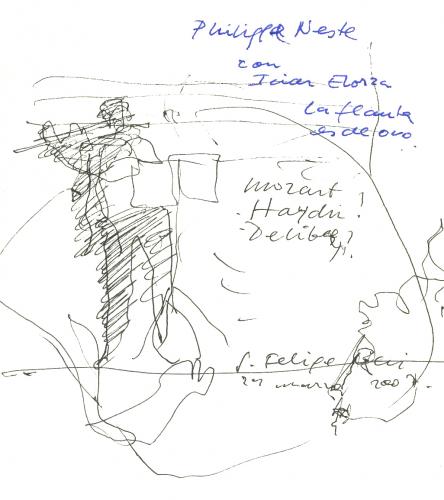 Philippe Neste
con
Iciar Elorza
la flauta
es de oro
mozart
Haydn!
Delibes?
S. Felipe Neri
marzo